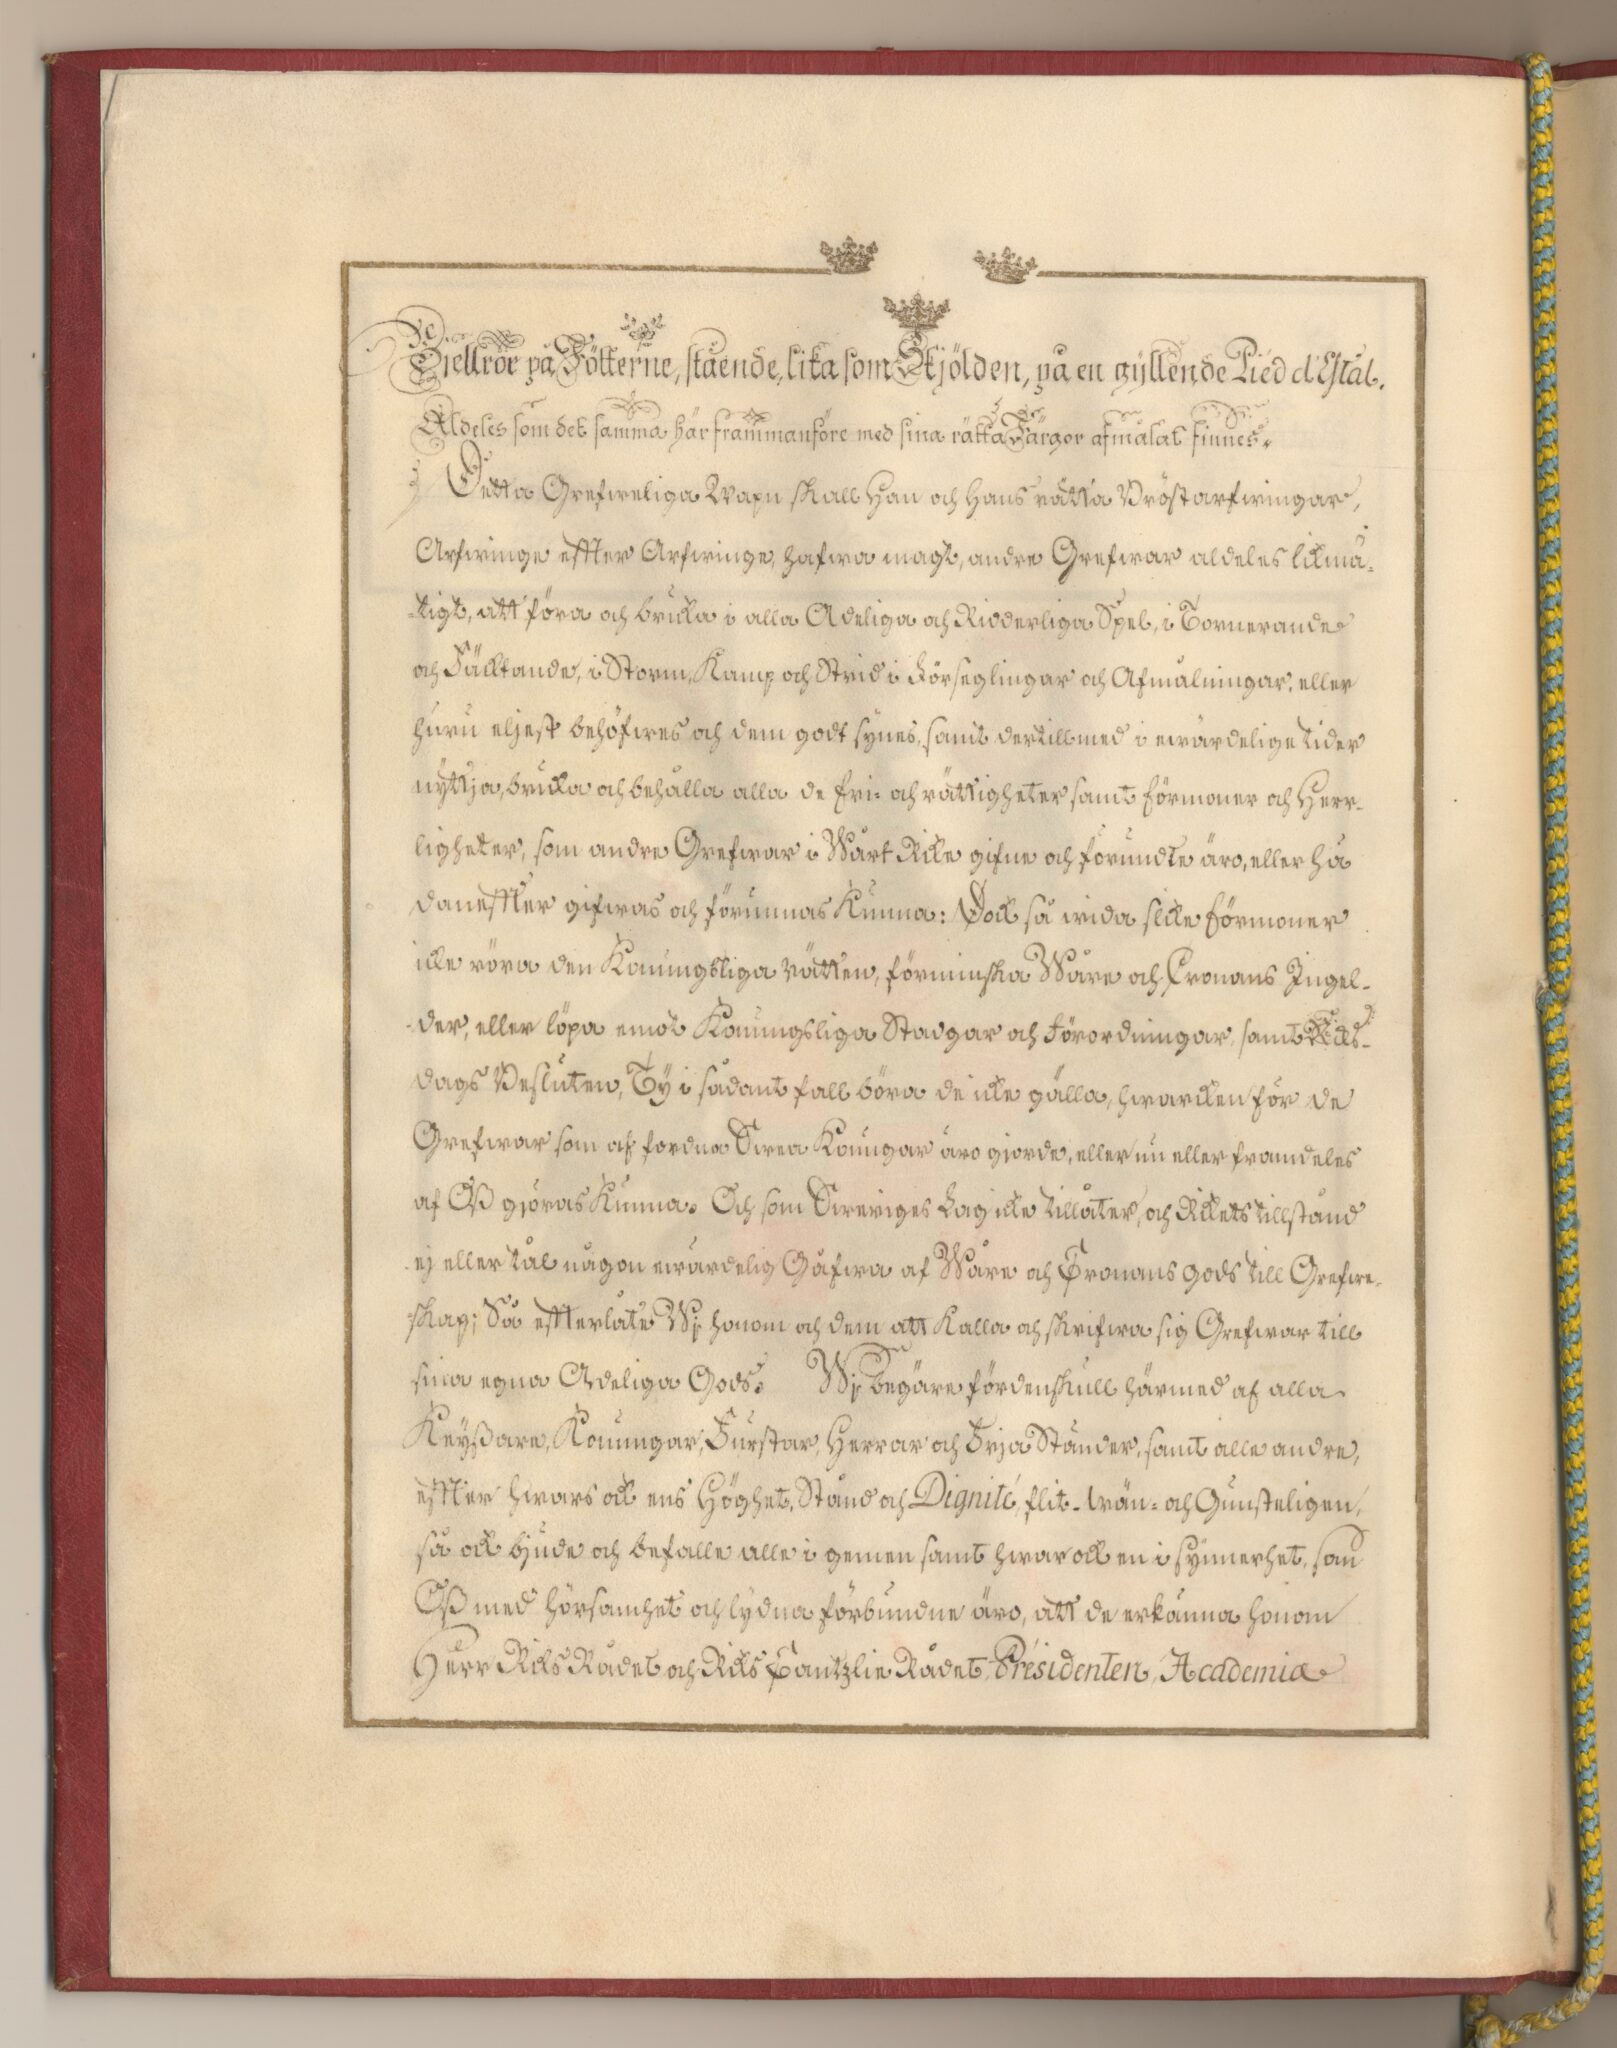 Fjellrör på Fötterne, stående, lika som Skjölden, på en gyllende Pied d'Estal.
Aldeles som det samma här frammanföre med sina rätta Färgor afmålat finnes.
Detta Grefweliga Wapn skall Han och Hans rätta Bröstarfwingar,
Arfwinge effter Arfwinge, hafwa magt, andre Grefwar aldeles likmä-
-tigt, att föra och bruka i alla Adeliga och Ridderliga Spel, i Tornerande
och Fäcktande, i Storm, Kamp och Strid i Förseglingar och Afmålningar, eller
huru eljest behöfwes och dem godt synes, samt dertillmed i ewärdelige tider
nyttja, bruka och behålla alla de fri- och rättigheter samt förmoner och Herr-
ligheter, som andre Grefwar i Wårt Rike gifne och förundte äro, eller hä
daneffter gifwas och förunnas kunna: Dock så wida slike förmoner
icke röra den Konungsliga rätten, förminska Wåre och Cronans Ingel-
-der, eller löpa emot Konungsliga Stadgar och Förordningar, samt Riks-
dags Besluten, Ty i sådant fall böra de icke gälla, hwarken för de
Grefwar som af fordna Swea Konungar äro gjorde, eller nu eller framdeles
af Oß göras kunna. Och som Sweriges Lag icke tillåter, och Rikets tillstånd
ej eller tål någon ewärdelig Gåfwa af Wåre och Cronans gods till Grefwe-
skap; Så effterlåte Wj honom och dem att kalla och skrifwa sig Grefwar till
sina egna Adeliga Gods. Wj begäre fördenskull härmed af alla
Keyßare, Konungar, Furstar, Herrar och Frja Ständer, samt alle andre,
effter hwars ock ens Höghet, Stånd och Dignité, flit- wän- och Gunsteligen,
så ock bjude och befalle alle i gemen samt hwar ock en i synnerhet, som
Oß med hörsamhet och lydna förbundne äro, att de erkänna honom
Herr Riks Rådet och Riks Cantzlie Rådet, Præsidenten, Academiæ